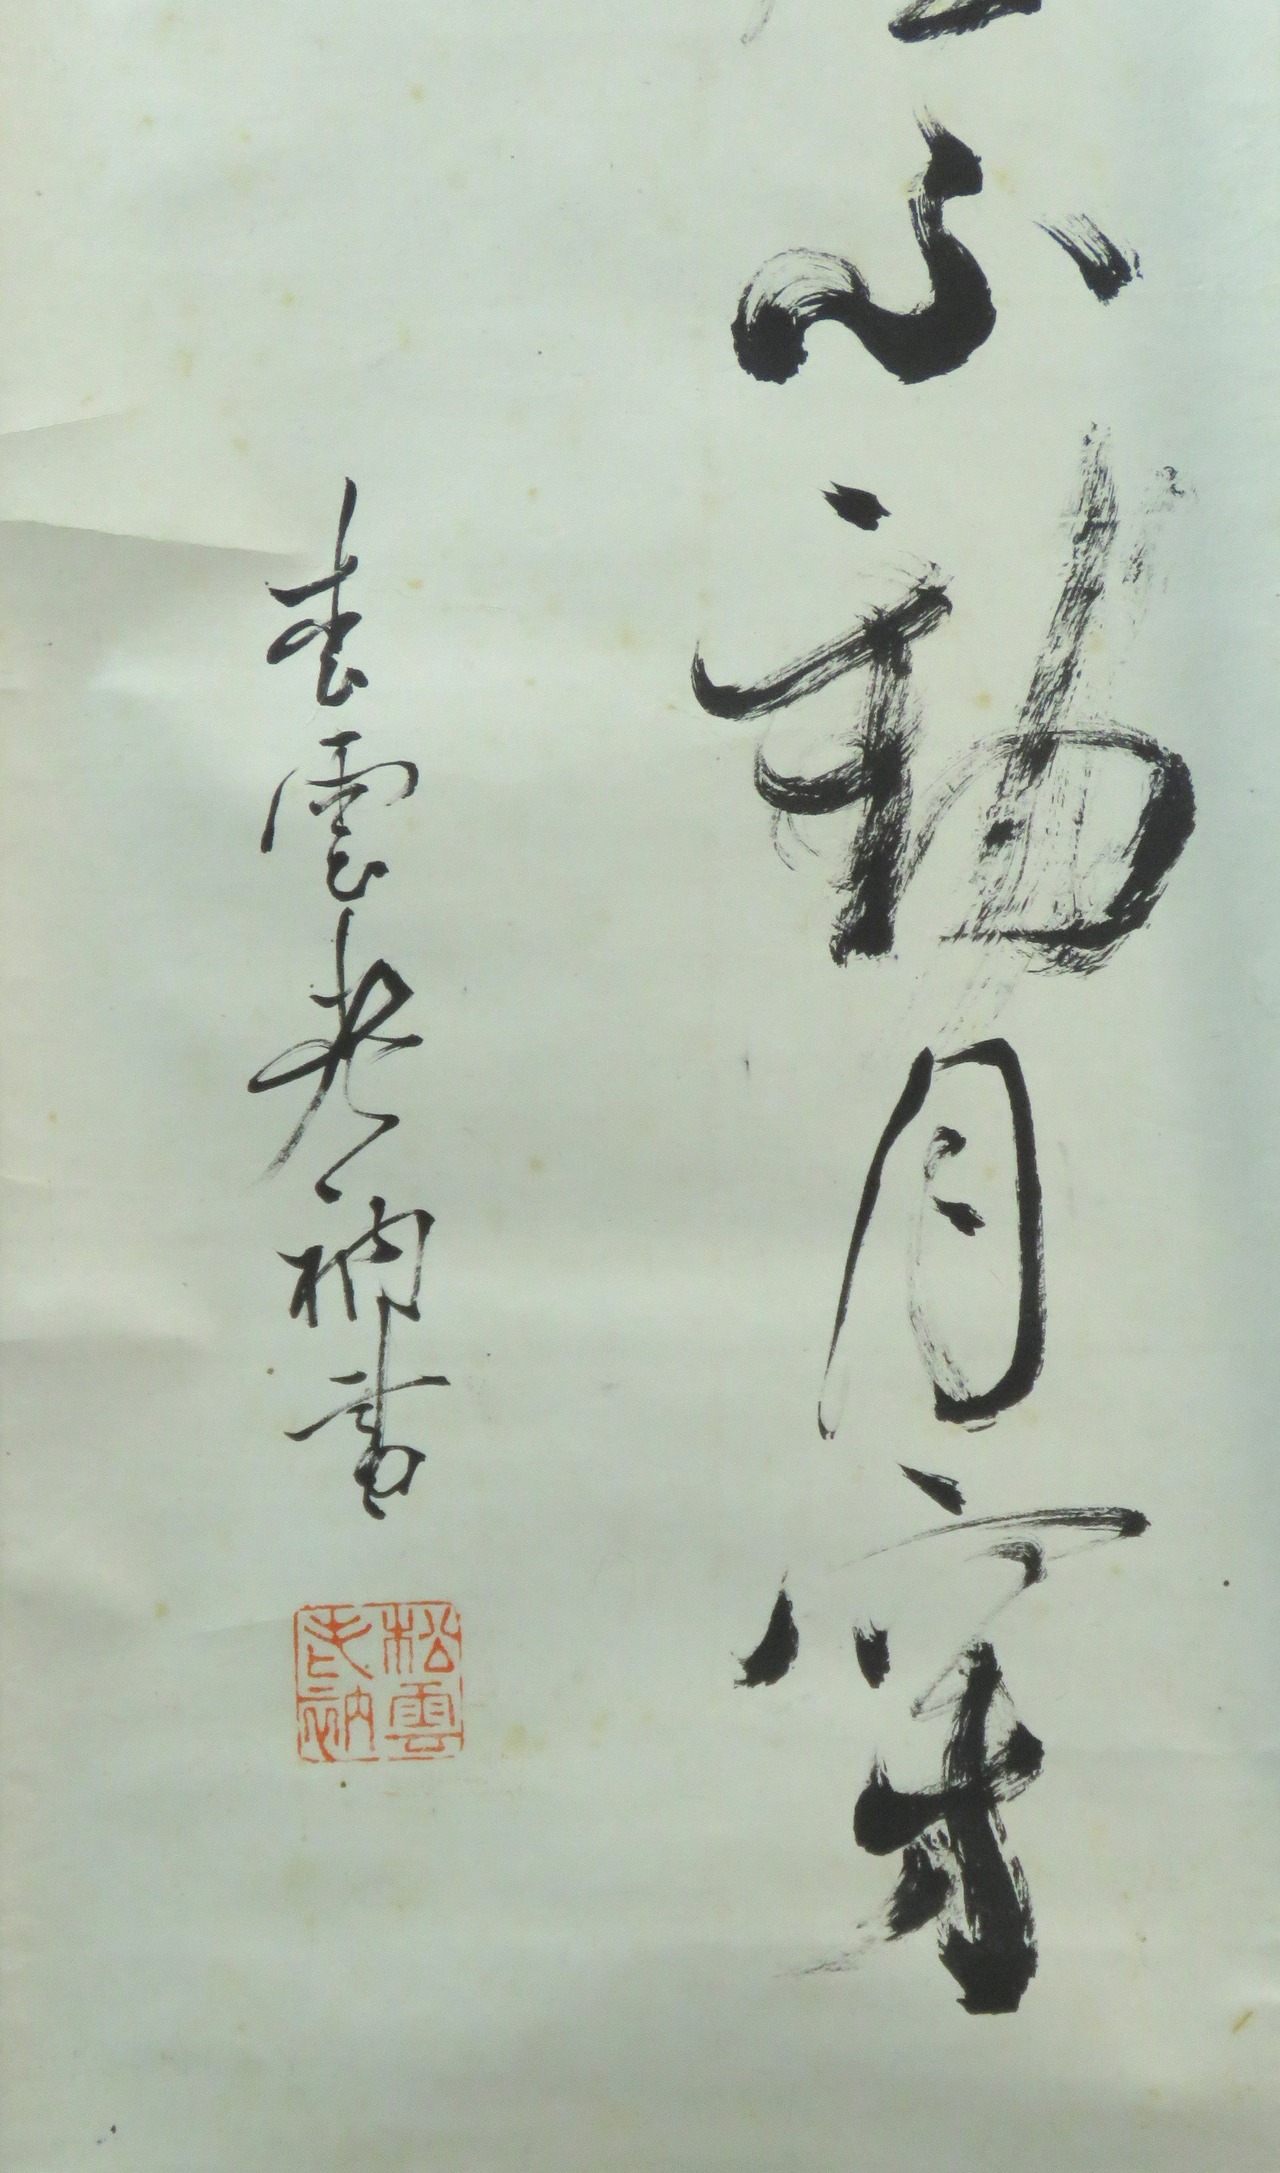 不動月穿
松雲老衲書
松雲
老衲